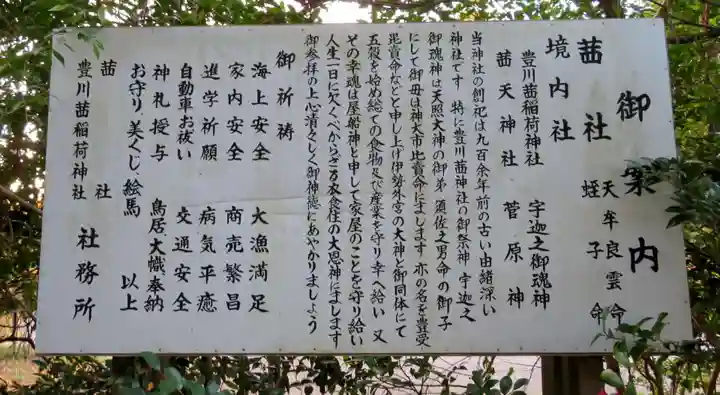 御案内
茜社 天牟良雲命
蛭子命
境内社
豊川茜稲荷神社 宇迦之御魂神
茜天神社 菅原神
当神社の創祀は九百余年前の古い由緒深い
神社です 特に豊川茜神社の御祭神 宇迦之
御魂神は天照大神の御弟 須佐之男命の御子
にして御母は神大市比賣命にまします 亦の名を豊受
毘賣命などと申し上げ伊勢外宮の大神と御同体にて
五穀を始め総ての食物及び産業を守り幸へ給い 又
その幸魂は屋船神と申して家屋のことを守り給い
人生一日に欠くべからざる衣食住の大恩神にまします
御参拝の上心清々しく御神徳にあやかりましよう
御祈祷
海上安全 大漁満足
家内安全 商売繁昌
進学祈願 病気平癒
自動車お祓い 交通安全
神札授与 鳥居大幟奉納
お守り、美くじ、絵馬 以上
茜社
豊川茜稲荷神社 社務所